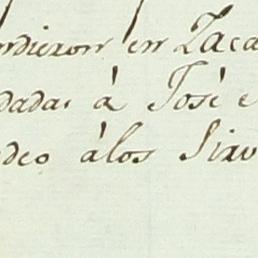 rdieron en Zaca
dadas à José e
deo àlos Sirv